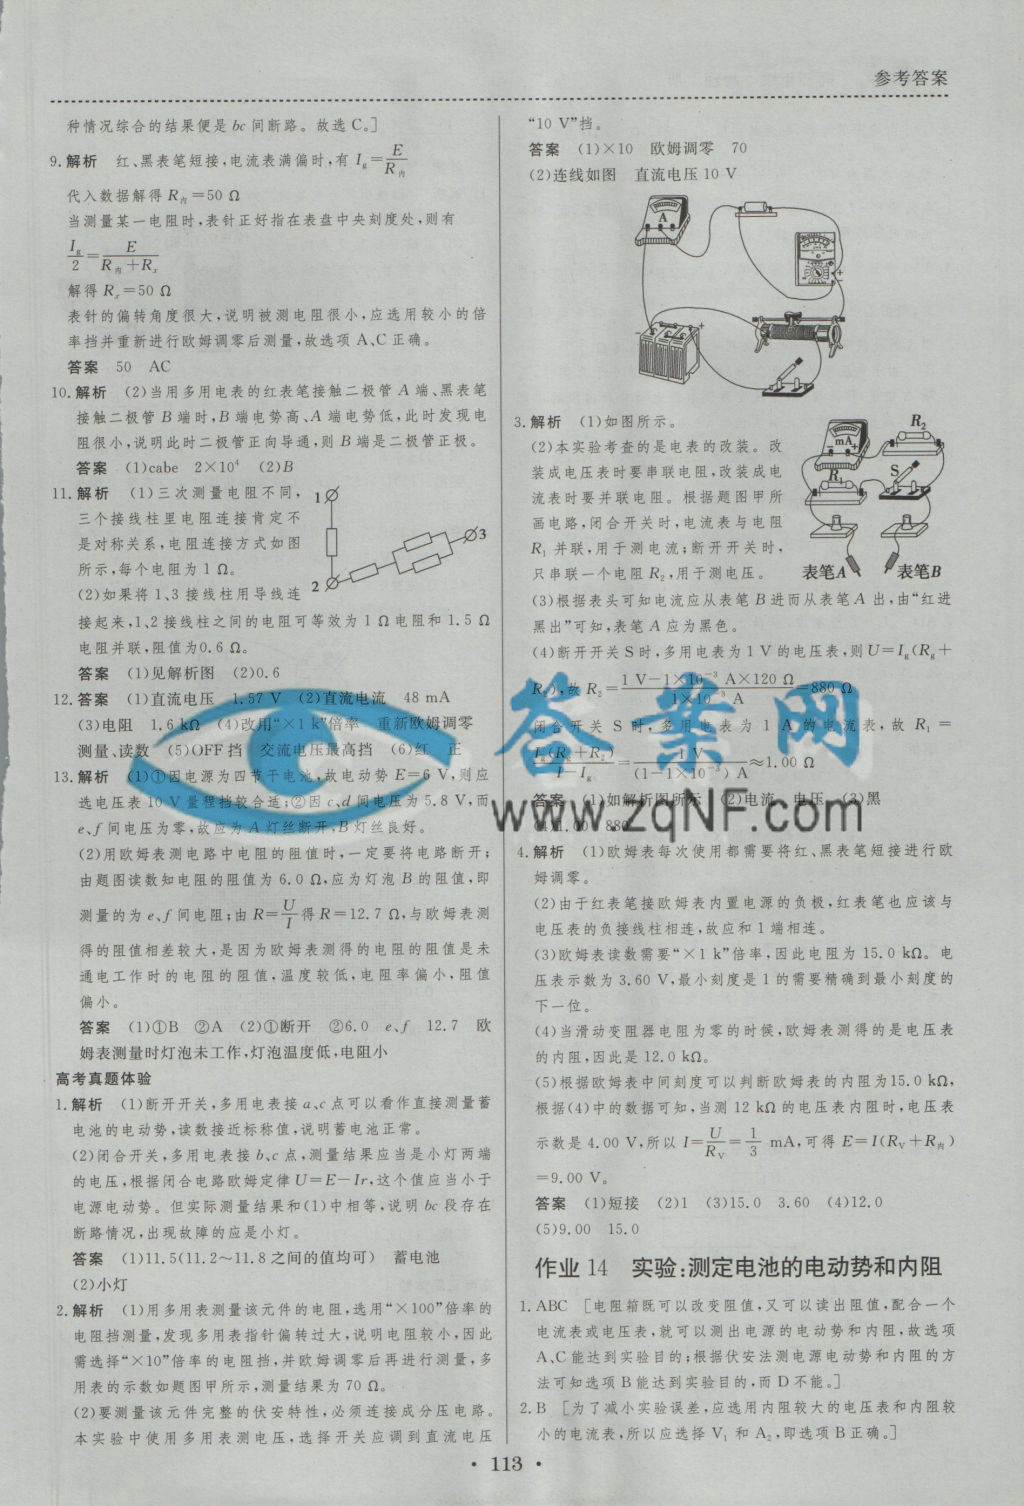 参考答案
种情况综合的结果便是bc间断路。故选C。]
9.解析 红、黑表笔短接,电流表满偏时,有Ig=E/R内
代入数据解得R内=50 Ω
当测量某一电阻时,表针正好指在表盘中央刻度处,则有
Ig/2=E/(R内+Rx)
解得Rx=50 Ω
表针的偏转角度很大,说明被测电阻很小,应选用较小的倍
率挡并重新进行欧姆调零后测量,故选项A、C正确。
答案 50 AC
10.解析 (2)当用多用电表的红表笔接触二极管A端、黑表笔
接触二极管B端时,B端电势高、A端电势低,此时发现电
阻很小,说明此时二极管正向导通,则B端是二极管正极。
答案 (1)cabe 2×10⁴ (2)B
11.解析 (1)三次测量电阻不同,
三个接线柱里电阻连接肯定不
是对称关系,电阻连接方式如图
所示,每个电阻为1 Ω。
(2)如果将1、3接线柱用导线连
接起来,1、2接线柱之间的电阻可等效为1 Ω电阻和1.5 Ω
电阻并联,阻值为0.6 Ω。
1
2
3
答案 (1)见解析图 (2)0.6
12.答案 (1)直流电压 1.57 V (2)直流电流 48 mA
(3)电阻 1.6 kΩ (4)改用“×1 k”倍率 重新欧姆调零
测量、读数 (5)OFF挡 交流电压最高挡 (6)红 正
13.解析 (1)①因电源为四节干电池,故电动势E=6 V,则应
选电压表10 V量程挡较合适;②因c、d间电压为5.8 V,而
e、f间电压为零,故应为A灯丝断开,B灯丝良好。
(2)用欧姆表测电路中电阻的阻值时,一定要将电路断开;
由题图读数知电阻的阻值为6.0 Ω,应为灯泡B的阻值,即
测量的为e、f间电阻;由R=U/I得R=12.7 Ω,与欧姆表测
得的阻值相差较大,是因为欧姆表测得的电阻的阻值是未
通电工作时的电阻的阻值,温度较低,电阻率偏小,阻值
偏小。
答案 (1)①B ②A (2)①断开 ②6.0 e、f 12.7 欧
姆表测量时灯泡未工作,灯泡温度低,电阻小
高考真题体验
1.解析 (1)断开开关,多用电表接a、c点可以看作直接测量蓄
电池的电动势,读数接近标称值,说明蓄电池正常。
(2)闭合开关,多用电表接b、c点,测量结果应当是小灯两端
的电压,根据闭合电路欧姆定律U=E−Ir,这个值应当小于
电源电动势。但实际测量结果和(1)中相等,说明bc段存在
断路情况,出现故障的应是小灯。
答案 (1)11.5(11.2~11.8之间的值均可) 蓄电池
(2)小灯
2.解析 (1)用多用表测量该元件的电阻,选用“×100”倍率的
电阻挡测量,发现多用表指针偏转过大,说明电阻较小,因此
需选择“×10”倍率的电阻挡,并欧姆调零后再进行测量,多
用表的示数如题图甲所示,测量结果为70 Ω。
(2)要测量该元件完整的伏安特性,必须连接成分压电路。
本实验中使用多用表测电压,选择开关应调到直流电压
“10 V”挡。
答案 (1)×10 欧姆调零 70
(2)连线如图 直流电压10 V
A
+
−
−
+
3.解析 (1)如图所示。
(2)本实验考查的是电表的改装。改
装成电压表时要串联电阻,改装成电
流表时要并联电阻。根据题图甲所
画电路,闭合开关时,电流表与电阻
R1并联,用于测电流;断开开关时,
只串联一个电阻R2,用于测电压。
mA
R2
R1
S
表笔A
表笔B
(3)根据表头可知电流应从表笔B进而从表笔A出,由“红进
黑出”可知,表笔A应为黑色。
(4)断开开关S时,多用电表为1 V的电压表,则U=Ig(Rg+
R2),故R2=(1 V−1×10⁻³ A×120 Ω)/(1×10⁻³ A)=880 Ω
闭合开关S时,多用电表为1 A的电流表,故R1=
Ig(Rg+R2)/(I−Ig)=1 V/((1−1×10⁻³) A)≈1.00 Ω
答案 (1)如解析图所示 (2)电流 电压 (3)黑
(4)1.00 880
4.解析 (1)欧姆表每次使用都需要将红、黑表笔短接进行欧
姆调零。
(2)由于红表笔接欧姆表内置电源的负极,红表笔也应该与
电压表的负接线柱相连,故应和1端相连。
(3)欧姆表读数需要“×1 k”倍率,因此电阻为15.0 kΩ。电
压表示数为3.60 V,最小刻度是1的需要精确到最小刻度的
下一位。
(4)当滑动变阻器电阻为零的时候,欧姆表测得的是电压表
的内阻,因此是12.0 kΩ。
(5)根据欧姆表中间刻度可以判断欧姆表的内阻为15.0 kΩ,
根据(4)中的数据可知,当测12 kΩ的电压表内阻时,电压表
示数是4.00 V,所以I=U/RV=1/3 mA,可得E=I(RV+R内)
=9.00 V。
答案 (1)短接 (2)1 (3)15.0 3.60 (4)12.0
(5)9.00 15.0
作业14 实验:测定电池的电动势和内阻
1.ABC [电阻箱既可以改变阻值,又可以读出阻值,配合一个
电流表或电压表,就可以测出电源的电动势和内阻,故选项
A、C能达到实验目的;根据伏安法测电源电动势和内阻的方
法可知选项B能达到实验目的,而D不能。]
2.B [为了减小实验误差,应选用内阻较大的电压表和内阻较
小的电流表,所以应选择V1和A2,即选项B正确。]
• 113 •
答案网
www.zqNF.com